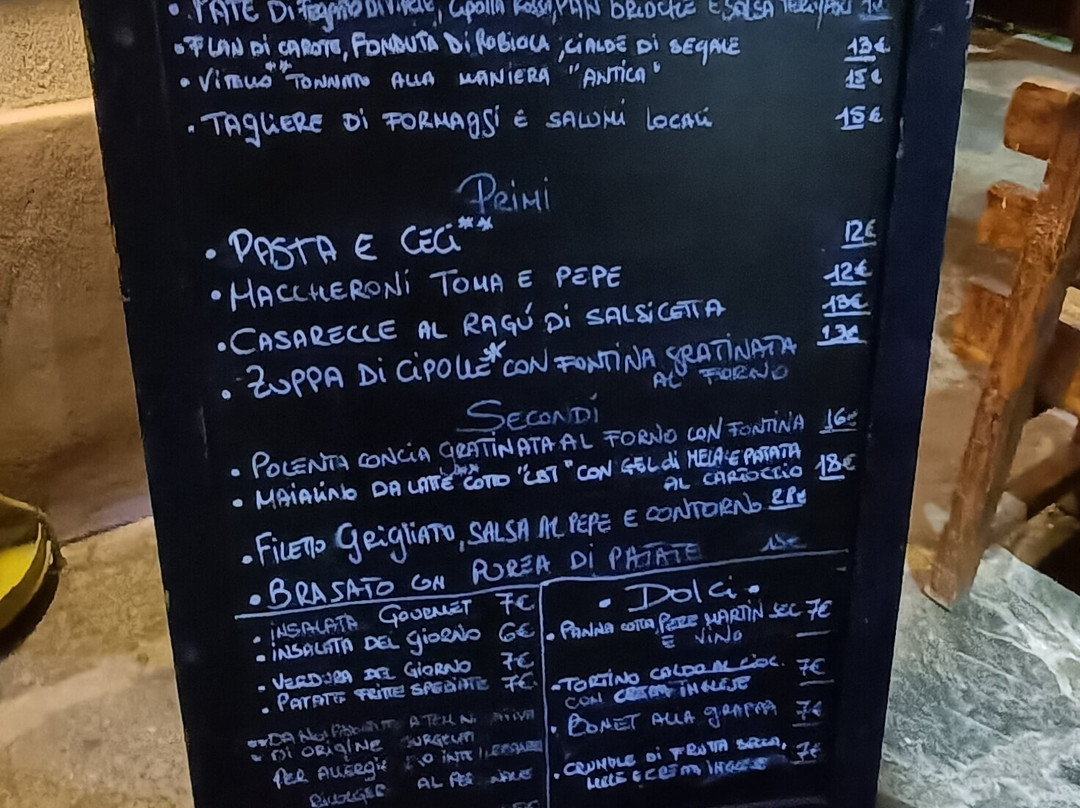 • PATÈ DI FEGATO DI VITELLO, CIPOLLA ROSSA, PAN BRIOCHE E SALSA TERIYAKI
• FLAN DI CAROTE, FONDUTA DI ROBIOLA, CIALDE DI SEGALE 13€
• VITELLO** TONNATO ALLA MANIERA "ANTICA" 15€
• TAGLIERE DI FORMAGGI E SALUMI LOCALI 15€
PRIMI
• PASTA E CECI** 12€
• MACCHERONI TOMA E PEPE 12€
• CASARECCE AL RAGÚ DI SALSICETTA 13€
• ZUPPA DI CIPOLLE* CON FONTINA GRATINATA 13€
AL FORNO
SECONDI
• POLENTA CONCIA GRATINATA AL FORNO CON FONTINA 16€
• MAIALINO DA LATTE** COTTO "CBT" CON GEL di MELA E PATATA 18€
AL CARTOCCIO
• FILETTO GRIGLIATO, SALSA AL PEPE E CONTORNO
• BRASATO CON PUREA DI PATATE
• INSALATA GOURMET 7€
• INSALATA DEL GIORNO 6€
• VERDURA DEL GIORNO 7€
• PATATE FRITTE SPEZIATE 7€
DI ORIGINE SURGELATI
PER ALLERGIE E/O INTOLLERANZE
AL PERSONALE
• DOLCI •
• PANNA COTTA PERE MARTIN SEC 7€
E VINO
• TORTINO CALDO AL CIOC. 7€
CON CREMA INGLESE
• BONET ALLA GRAPPA 7€
• CRUMBLE DI FRUTTA SECCA, 7€
MELE E CREMA INGLESE